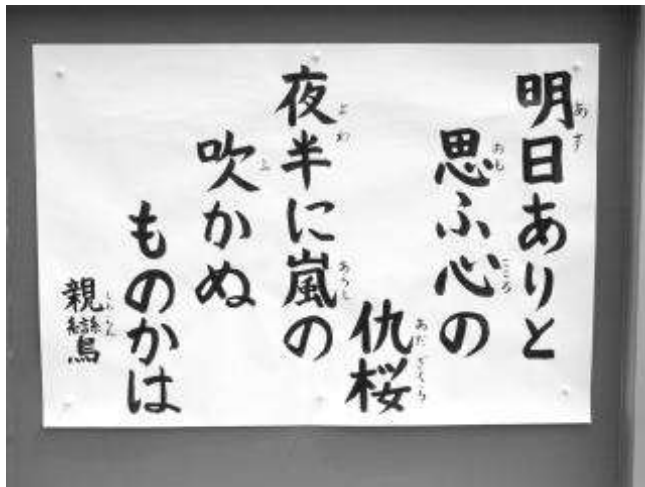 明日ありと
思ふ心の
仇桜
夜半に嵐の
吹かぬ
ものかは
親鸞